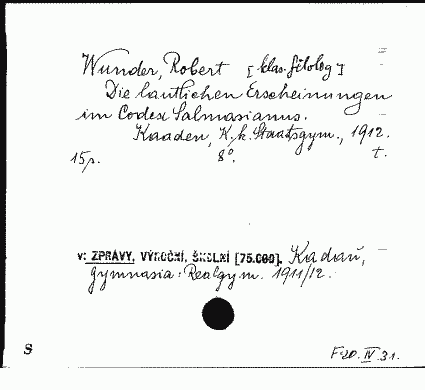 Wunder, Robert [klas. filolog]
Die lautlichen Erscheinungen
im Codex Salmasianus.
Kaaden, K. k. Staatsgym., 1912.
15 p. 8°. t.
v: ZPRÁVY, VÝROČNÍ, ŠKOLNÍ [75.000]. Kadaň,
gymnasia: Realgym. 1911/12.
S
F-20. IV. 31.